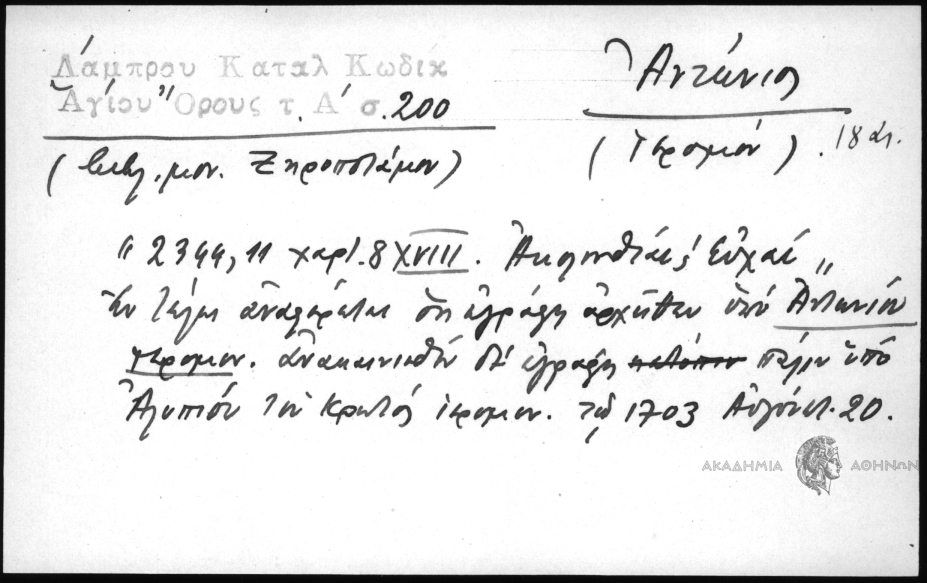 Λάμπρου Καταλ Κωδικ
Ἁγίου Ὄρους τ. Α' σ. 200
Ἀντώνιος
(βιβλ. μον. Ξηροποτάμου)
(Ἱερομον) . 18 αι.
"2344, 11 χαρτ. 8 XVIII. Ἀκολουθίαι, Εὐχαί"
Ἐν τέλει ἀναφέρεται ὅτι ἐγράφη ἀρχῆθεν ὑπό Ἀντωνίου
Ἱερομον. ἀνακαινισθέν δέ ἐγράφη κατόπιν πάλιν ὑπό
Ἀλυπίου τοῦ Κρητός ἱερομον. τῷ 1703 Αὐγούστ. 20.
ΑΚΑΔΗΜΙΑ ΑΘΗΝΩΝ